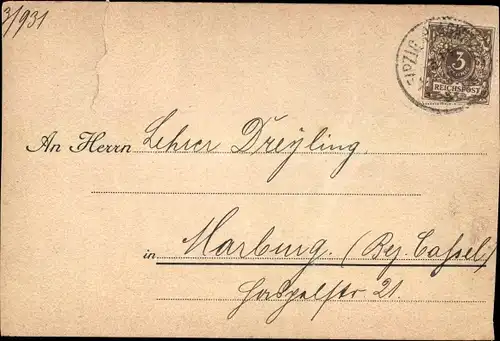 3/931
LEIPZIG
3
REICHSPOST
An Herrn Lehrer Dreyling,
in Marburg. (Bez. Cassel)
Haspelstr 21.